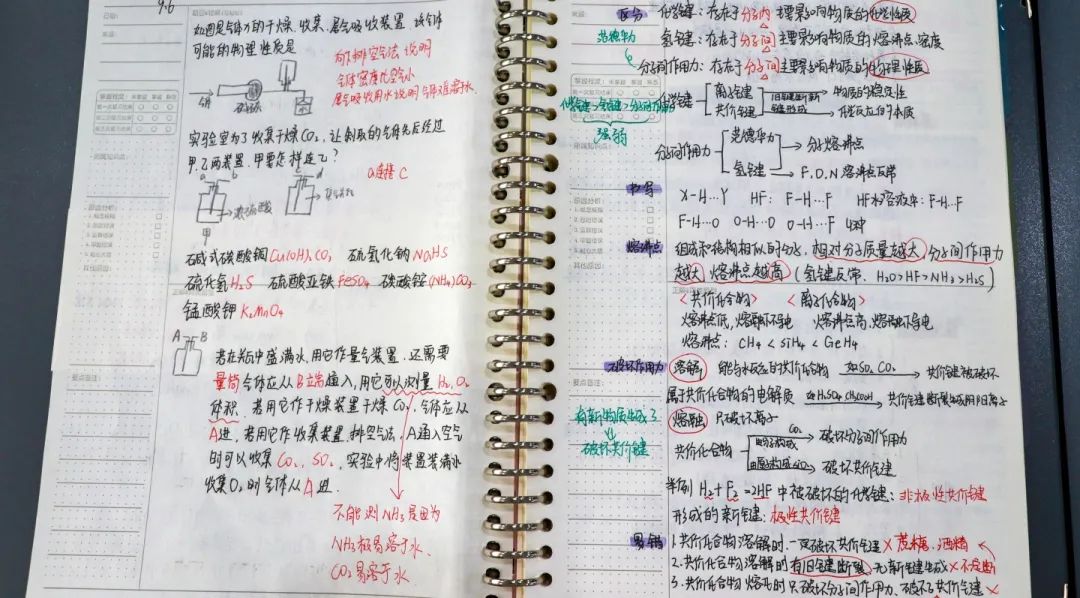 9.6
如图是气体X的干燥、收集、尾气吸收装置,该气体
可能的物理性质是
向下排空气法说明
气体密度比空气小
尾气吸收用水说明气体易溶于水
实验室为了收集干燥CO₂,让制取的气体先后经过
甲乙两装置,甲要怎样连乙?
a连接C
浓硫酸
甲
碱式碳酸铜Cu₂(OH)₂CO₃ 硫氢化钠NaHS
硫化氢H₂S 硫酸亚铁FeSO₄ 碳酸铵(NH₄)₂CO₃
锰酸钾K₂MnO₄
A B
若在其中盛满水,用它作量气装置,还需要
量筒气体应从B端通入,用它可以测量H₂,O₂
体积,若用它作干燥装置干燥CO₂,气体应从
A进,若用它作收集装置,排空气法,A通入空气
时可以收集CO₂,SO₂,实验中将装置装满水
收集O₂时气体从A进.
不能测NH₃是因为
NH₃极易溶于水、
CO₂易溶于水
区分 化学键:存在于分子内 主要影响物质的化学性质
范德华力 氢键:存在于分子间 主要影响物质的熔沸点、密度
分子间作用力:存在于分子间主要影响物质的物理性质
化学键>氢键>分子间作用力
强弱
化学键 离子键 旧键断新键形成 物质的稳定性
共价键 化学反应的本质
分子间作用力 范德华力 分子熔沸点
氢键 F.O.N熔沸点反常
书写 X-H…Y HF: F-H…F HF水溶液中: F-H…F
F-H…O O-H…O O-H…F 4种
熔沸点 组成和结构相似的分子,相对分子质量越大,分子间作用力
越大,熔沸点越高(氢键反常,H₂O>HF>NH₃>H₂S)
<共价化合物> <离子化合物>
熔沸点低,熔融不导电 熔沸点高,熔融导电
熔沸点: CH₄<SiH₄<GeH₄
破坏作用力 溶解: 能与水反应的共价化合物 如SO₂ CO₂ 共价键被破坏
属于共价化合物的电解质 如H₂SO₄ CH₃COOH 共价键断裂生成阴阳离子
熔融: 只破坏离子
有新物质生成了
破坏共价键
共价化合物 由分子构成 CO₂ 破坏分子间作用力
由原子构成SiO₂ 破坏共价键
举例 H₂+F₂=2HF 中被破坏的化学键:非极性共价键
形成的新键:极性共价键
易错 1.共价化合物溶解时,一定破坏共价键 × 蔗糖、酒精
2.共价化合物溶解时有旧键断裂,无新键生成 ×
3.共价化合物熔化时只破坏分子间作用力、破坏了共价键 ×